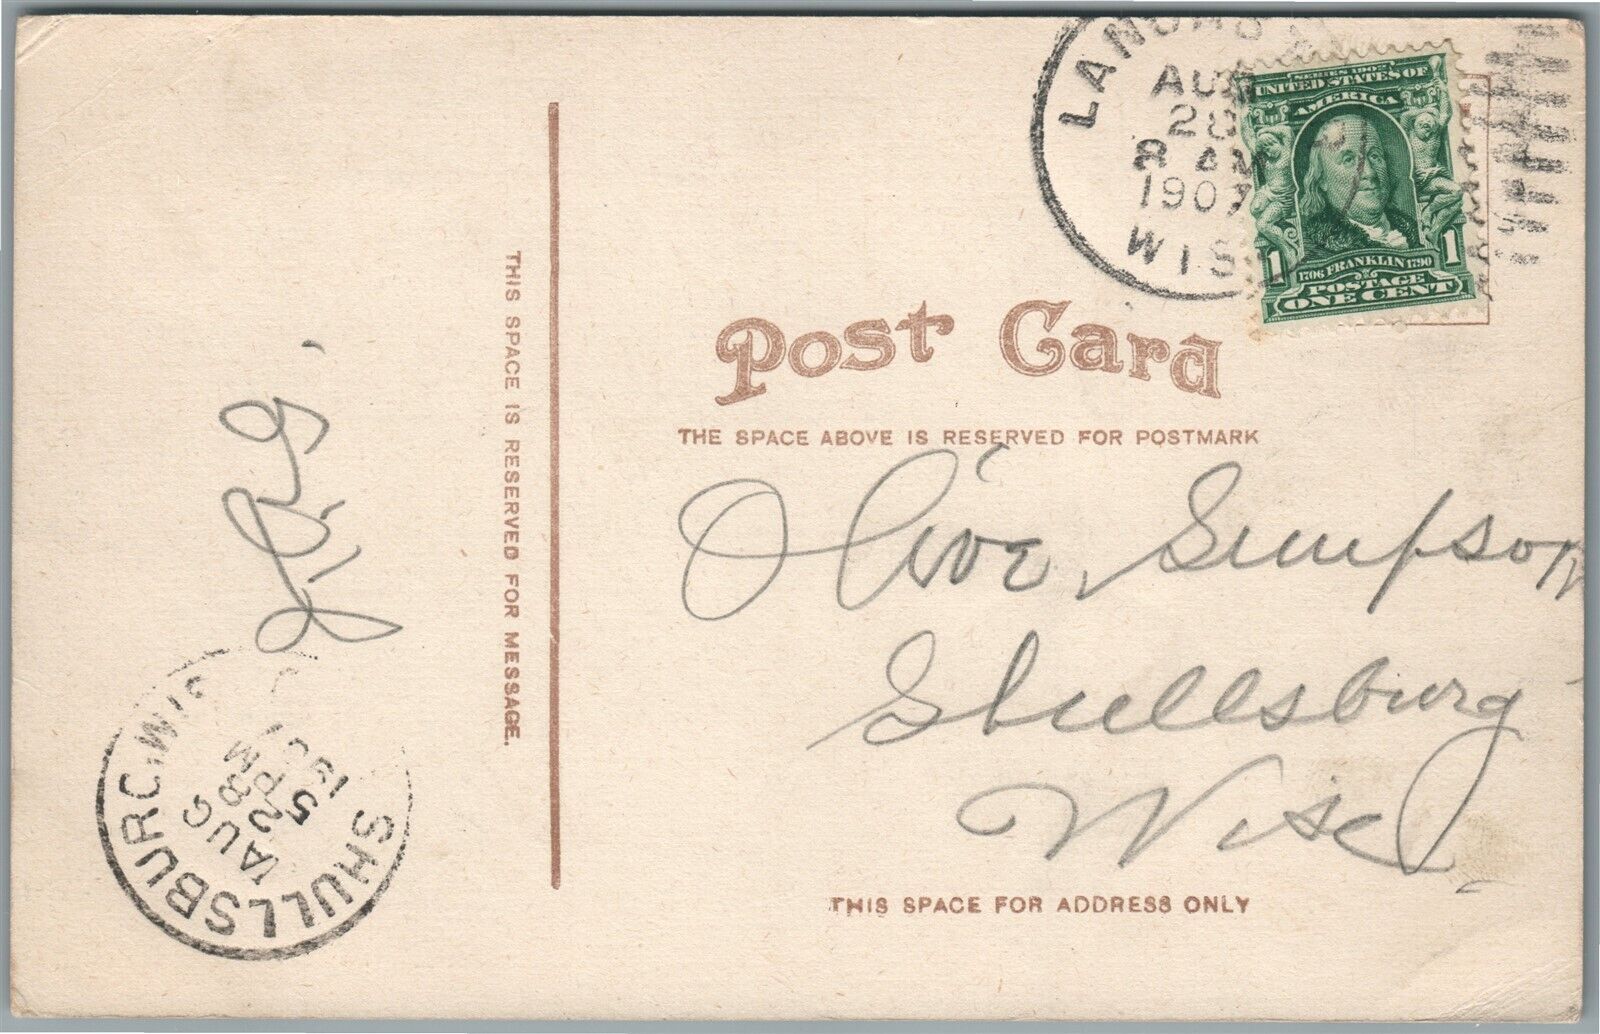 AUG
28
8 AM
1907
WIS
SERIES 1902
UNITED STATES OF
AMERICA
1 1
1706 FRANKLIN 1790
POSTAGE
ONE CENT
Post Card
THE SPACE ABOVE IS RESERVED FOR POSTMARK
Olive Simpson
Shullsburg
Wisc
THIS SPACE FOR ADDRESS ONLY
THIS SPACE IS RESERVED FOR MESSAGE.
SHULLSBURG WIS
AUG
28
5 PM